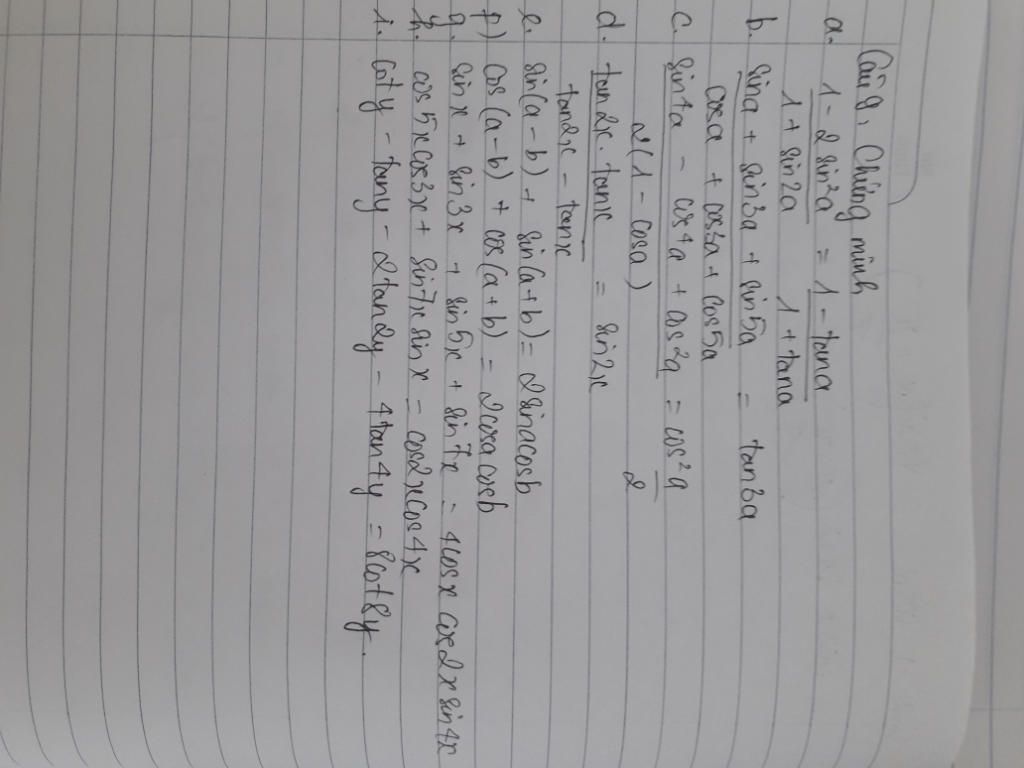 Câu 9. Chứng minh
a. 1 - 2 sin²a / 1 + sin2a = 1 - tana / 1 + tana
b. sina + sin3a + sin5a / cosa + cos3a + cos5a = tan3a
c. sin⁴a - cos⁴a + cos²a / 2(1 - cosa) = cos² a/2
d. tan2x . tanx / tan2x - tanx = sin2x
e. sin(a-b) + sin(a+b) = 2sinacosb
f) cos(a-b) + cos(a+b) = 2cosa cosb
g. sinx + sin3x + sin5x + sin7x = 4cosx cos2x sin4x
h. cos5xcos3x + sin7x sinx = cos2xcos4x
i. coty - tany - 2tan2y - 4tan4y = 8cot8y.